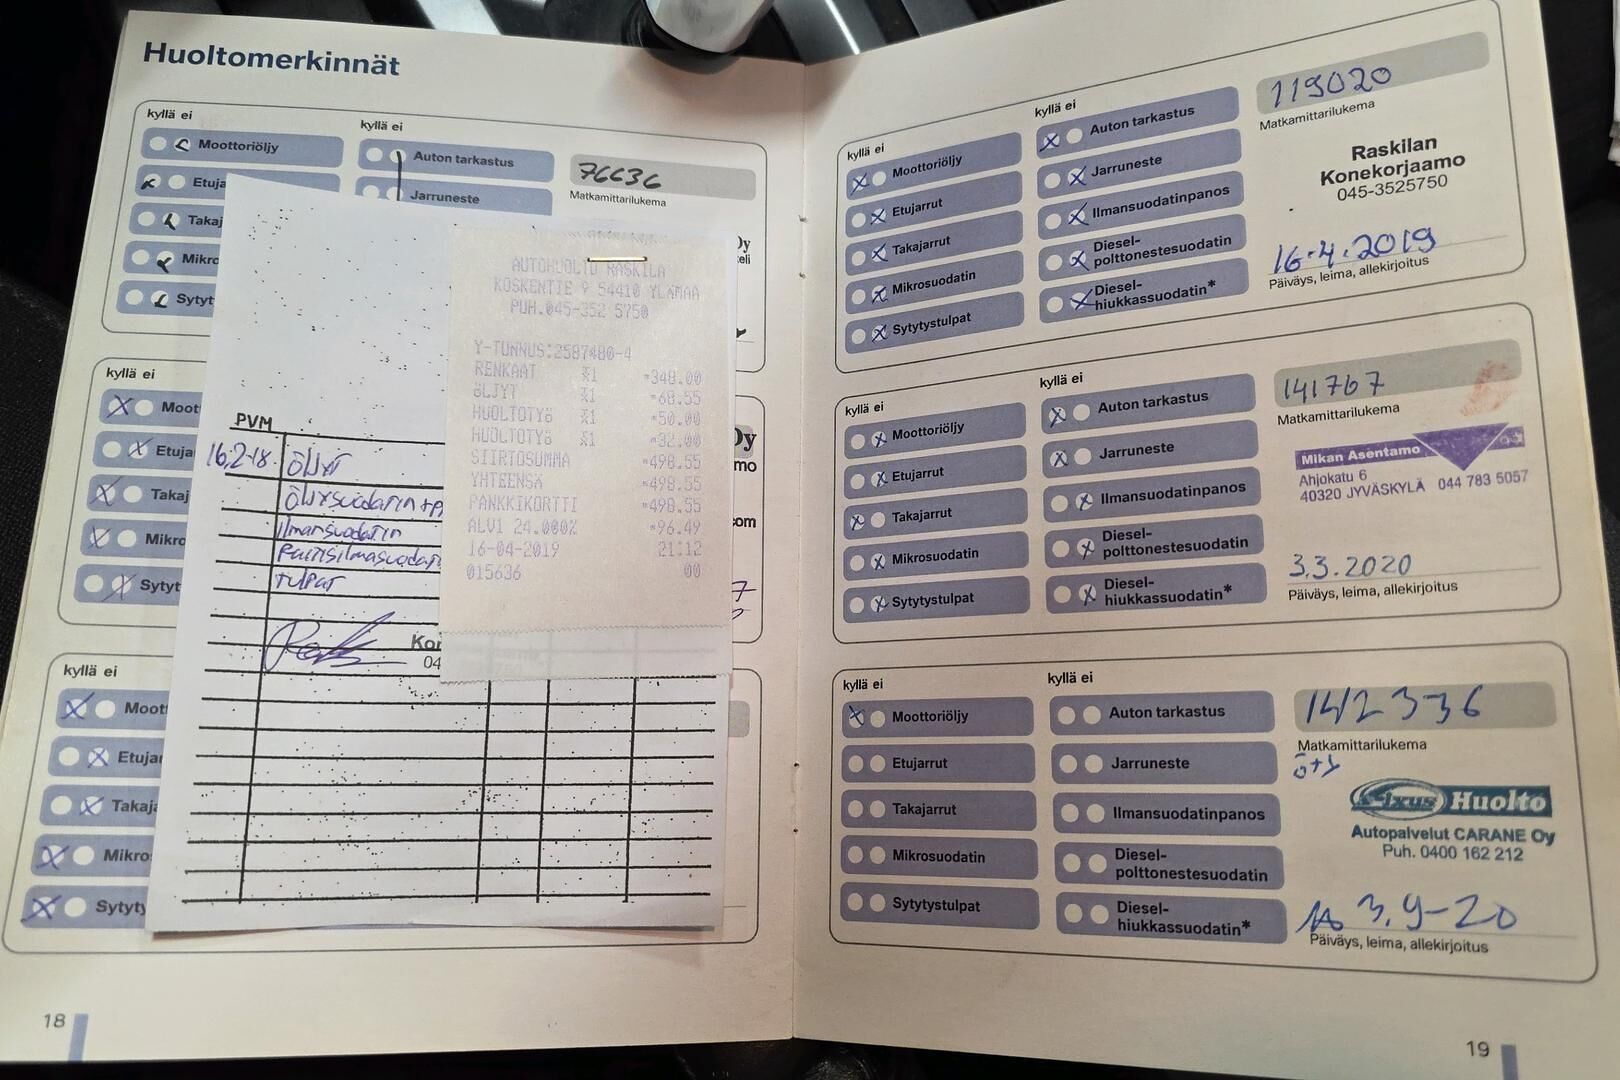 Huoltomerkinnät
kyllä ei
kyllä ei
Moottoriöljy
Auton tarkastus
76636
Matkamittarilukema
Etuja
Jarruneste
Takaj
Mikro
Sytyt
Oy
teli
kyllä ei
Moot
Etuja
Takaj
Mikro
Sytyt
Oy
mo
om
kyllä ei
Moot
Etujar
Takaja
Mikros
Sytyty
PVM
16.2-18.
ÖLJYT
Öljysuodatin + pr
Ilmansuodatin
Raitisilmasuodati
Tulpat
Kon
04
AUTOHUOLTO RASKILA
KOSKENTIE 9 54410 YLÄMAA
PUH.045-352 5750
Y-TUNNUS:2587480-4
RENKAAT X1 *348.00
ÖLJYT X1 *68.55
HUOLTOTYÖ X1 *50.00
HUOLTOTYÖ X1 *32.00
SIIRTOSUMMA *498.55
YHTEENSÄ *498.55
PANKKIKORTTI *498.55
ALV1 24.000% *96.49
16-04-2019 21:12
015636 00
18
kyllä ei
kyllä ei
Moottoriöljy
Auton tarkastus
119020
Matkamittarilukema
Etujarrut
Jarruneste
Raskilan
Konekorjaamo
045-3525750
Takajarrut
Ilmansuodatinpanos
Mikrosuodatin
Diesel-
polttonestesuodatin
16.4.2019
Päiväys, leima, allekirjoitus
Sytytystulpat
Diesel-
hiukkassuodatin*
kyllä ei
kyllä ei
Moottoriöljy
Auton tarkastus
141767
Matkamittarilukema
Etujarrut
Jarruneste
Mikan Asentamo
Ahjokatu 6
40320 JYVÄSKYLÄ 044 783 5057
Takajarrut
Ilmansuodatinpanos
Mikrosuodatin
Diesel-
polttonestesuodatin
3.3.2020
Päiväys, leima, allekirjoitus
Sytytystulpat
Diesel-
hiukkassuodatin*
kyllä ei
kyllä ei
Moottoriöljy
Auton tarkastus
142336
Matkamittarilukema
ö+s
Etujarrut
Jarruneste
Fixus Huolto
Autopalvelut CARANE Oy
Puh. 0400 162 212
Takajarrut
Ilmansuodatinpanos
Mikrosuodatin
Diesel-
polttonestesuodatin
3.9-20
Päiväys, leima, allekirjoitus
Sytytystulpat
Diesel-
hiukkassuodatin*
19